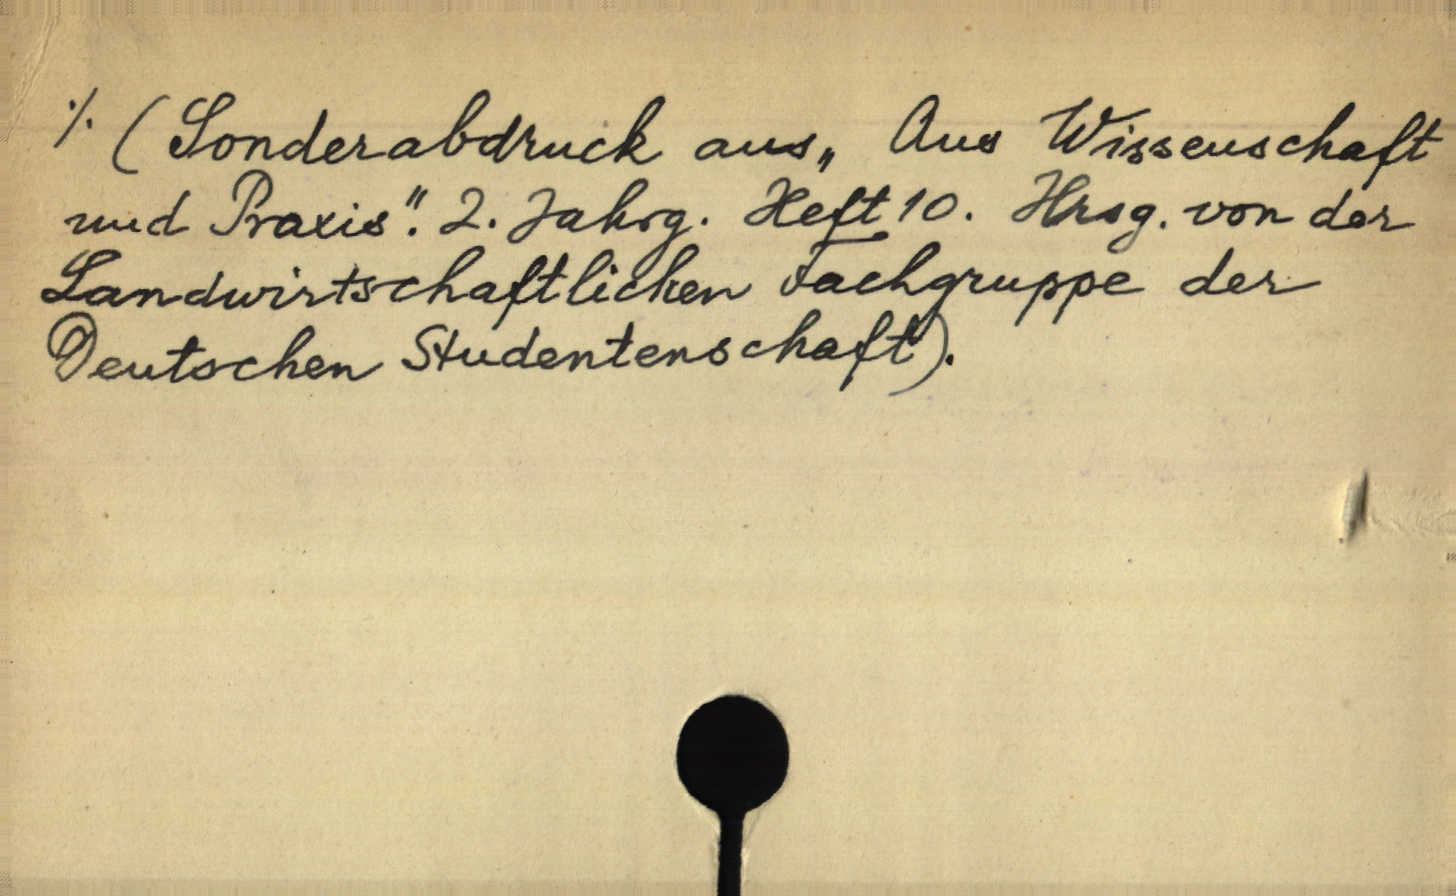 ./. (Sonderabdruck aus „ Aus Wissenschaft
und Praxis". 2. Jahrg. Heft 10. Hrsg. von der
Landwirtschaftlichen Fachgruppe der
Deutschen Studentenschaft).